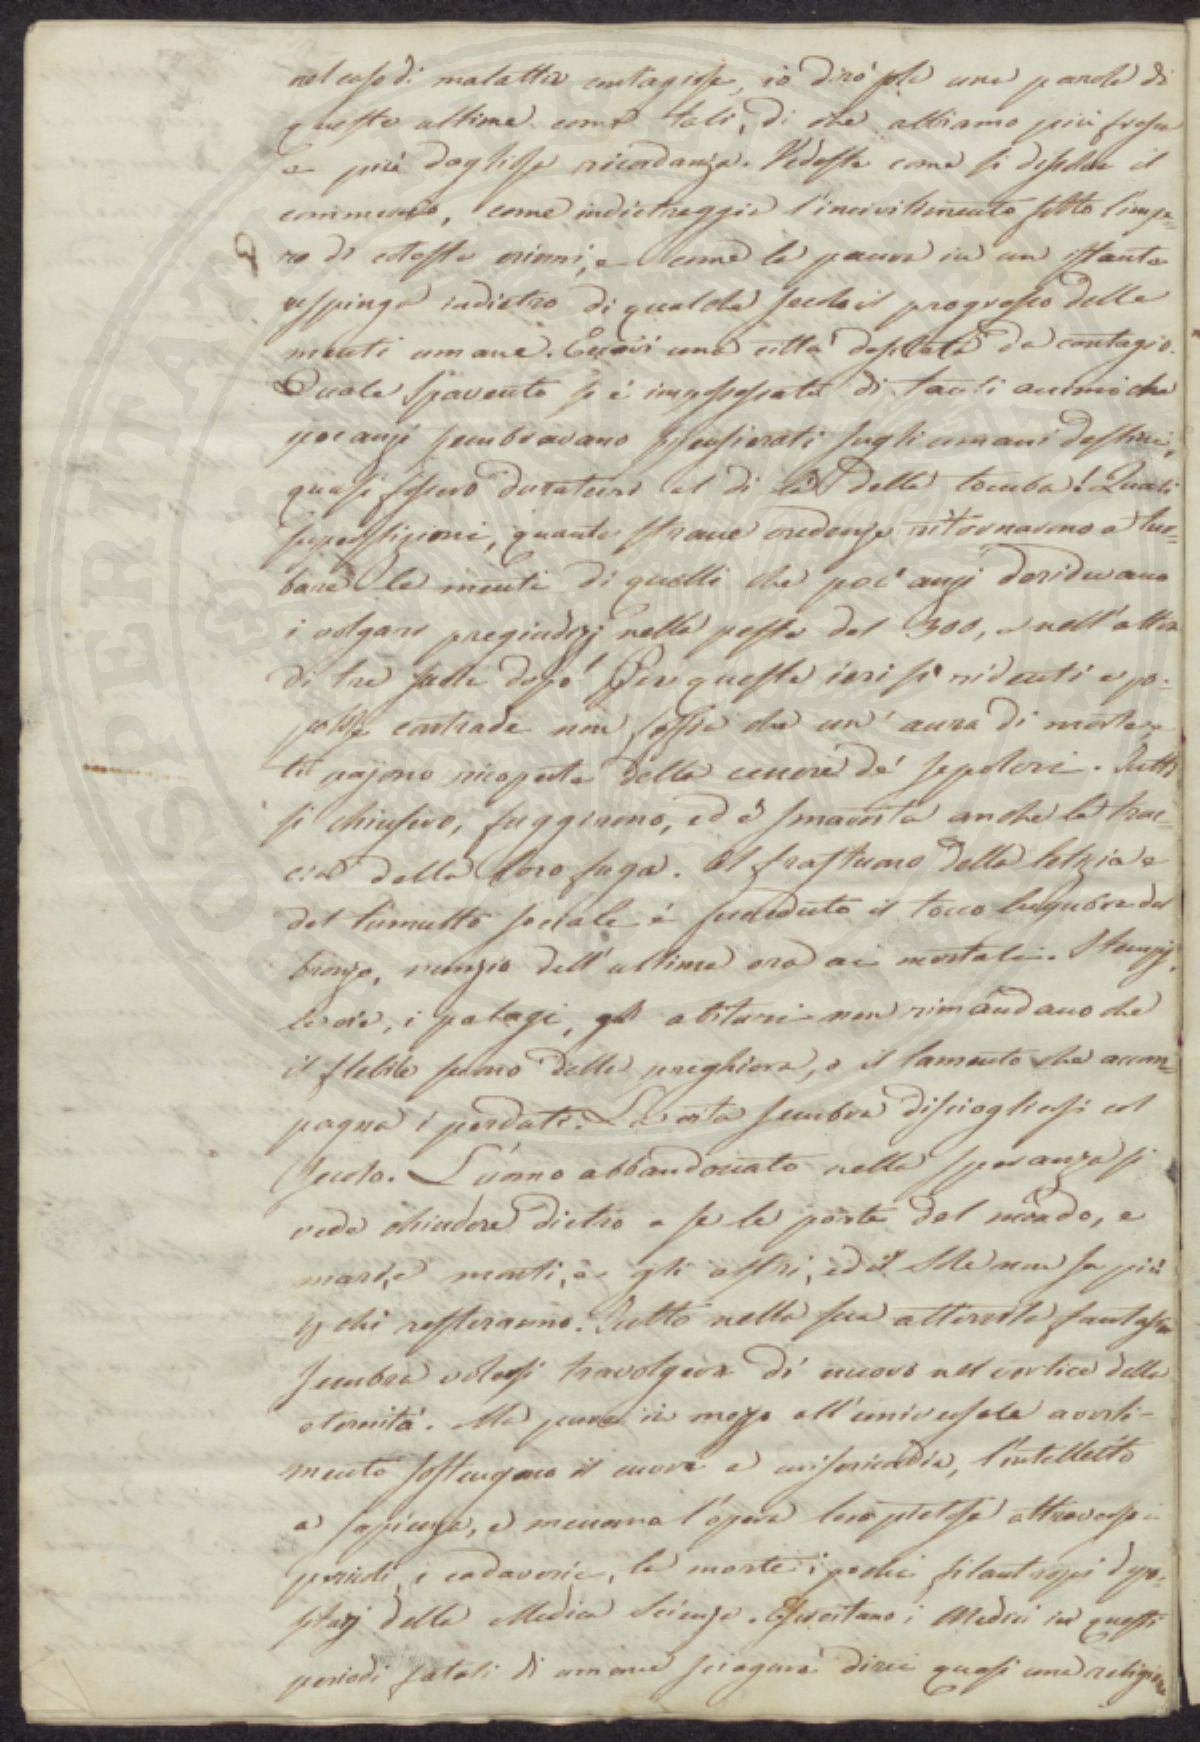 nel caso di malattie contagiose, io dirò sole una parola di
queste ultime come tali, di che abbiamo più fresca
e più dogliosa ricordanza. Vedeste come si desola il
commercio, come indietreggia l'incivilimento sotto l'impe-
ro di coteste crisi, e come la paura in un istante
respinga indietro di qualche secolo il progresso delle
menti umane. Eccovi una città desolata da contagio.
Quale spavento si è impossessato di tanti animi che
poc'anzi sembravano spensierati sugli umani destini,
quasi fossero duraturi al di là della tomba! Quali
superstizioni, quante strane credenze ritornarono a tur-
bare le menti di quelli che poc'anzi deridevano
i volgari pregiudizj nella peste del 300, e nell'altra
di tre secoli dopo! Per queste ieri sì ridenti e po-
polose contrade non soffia che un'aura di morte, e
ti pajono ricoperte della cenere de' sepolcri. Tutti
si chiusero, fuggirono, ed è smarrita anche la trac-
cia della loro fuga. Al frastuono della letizia e
del tumulto sociale è succeduto il tocco lugubre del
bronzo, nunzio dell'ultima ora ai mortali. I tempj,
le vie, i palagi, gli abituri non rimandano che
il flebile suono della preghiera, o il lamento che accom-
pagna i perduti. La vita sembra disciogliersi col
secolo. L'uomo abbandonato nella speranza si
vede chiudere dietro a se le porte del mondo, e
mari, e monti, e gli astri, ed il Sole non sa più
a chi resteranno. Tutto nella sua atterrita fantasia
sembra volersi travolgere di nuovo nel vortice della
eternità. Ma pure in mezzo all'universale avvili-
mento sostengono il cuore a misericordia, l'intelletto
a sapienza, e menano l'opera loro pietosa attraverso i
pericoli, i cadaveri, la morte i pochi filantropi apo-
stoli della Medica Scienza. Esercitano i Medici in questi
periodi fatali di umane sciagure direi quasi una religione